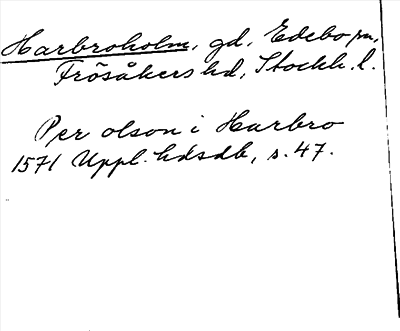 Harbroholm, gd, Edebo sn,
Frösåkers hd, Stockh. l.
Per olson i Harbro
1571 Uppl. hdsdb, s. 47.